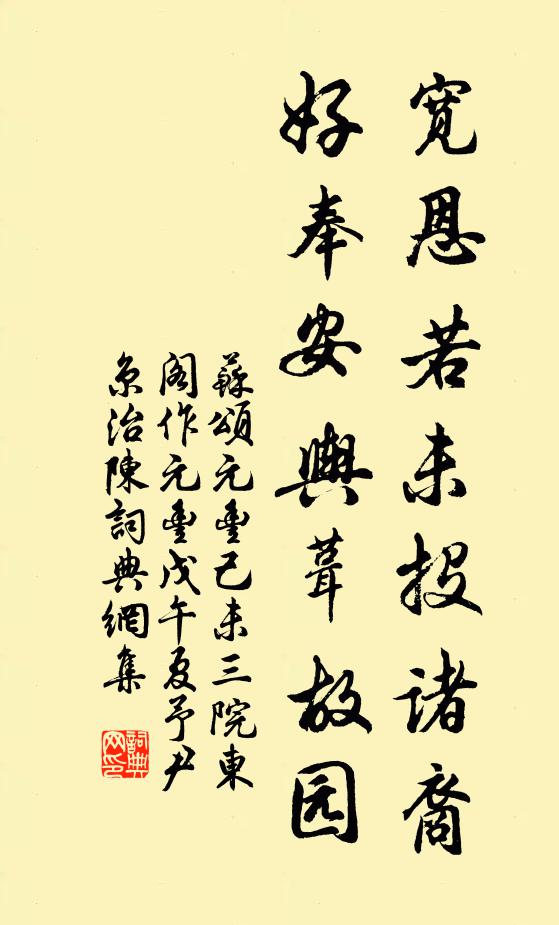 寬恩若未投諸裔
好奉安輿葺故园
蘇頌元豐己未三院東
閣作元豐戊午夏予尹
京治陳詞典網集
詞典網印